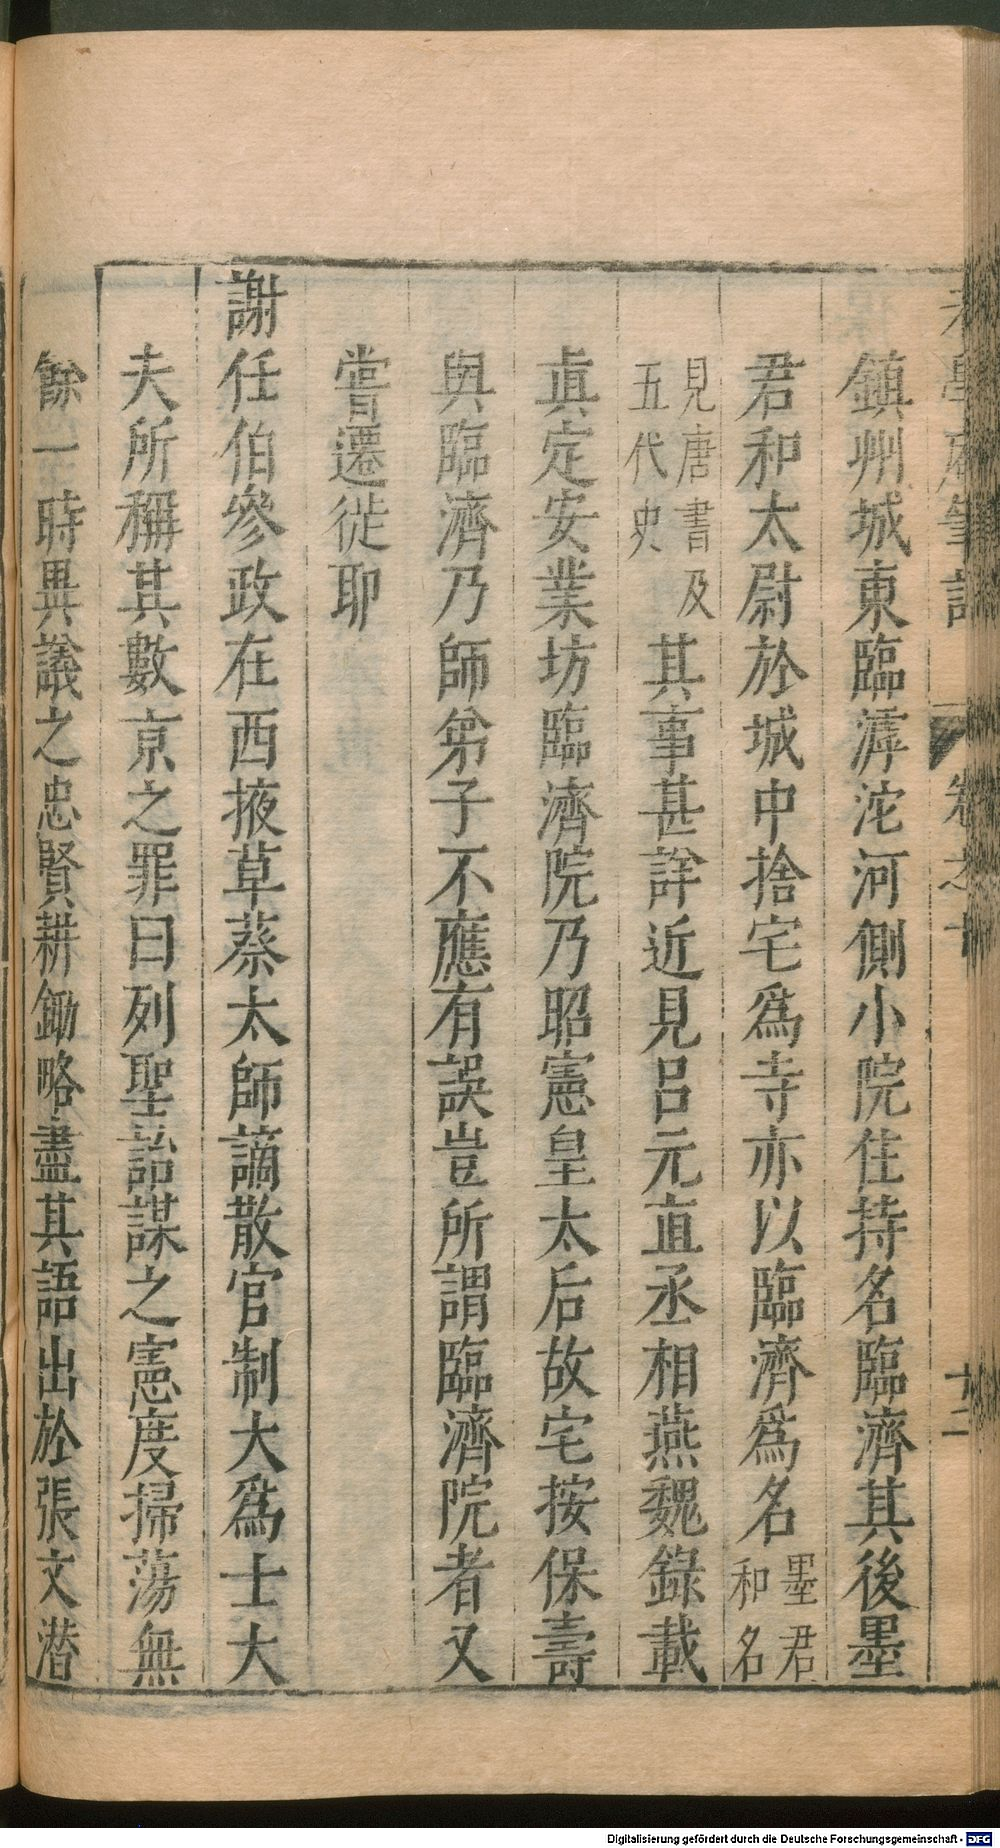 老學庵筆記 卷之十 十二
鎮州城東臨滹沱河側小院住持名臨濟其後墨
君和太尉於城中捨宅爲寺亦以臨濟爲名墨君和名
見唐書及五代史其事甚詳近見呂元直丞相燕魏錄載
眞定安業坊臨濟院乃昭憲皇太后故宅按保壽
與臨濟乃師弟子不應有誤豈所謂臨濟院者又
嘗遷徙耶
謝任伯參政在西掖草蔡太師謫散官制大爲士大
夫所稱其數京之罪曰列聖詒謀之憲度掃蕩無
餘一時異議之忠賢耕鋤略盡其語出於張文潛
Digitalisierung gefördert durch die Deutsche Forschungsgemeinschaft - DFG